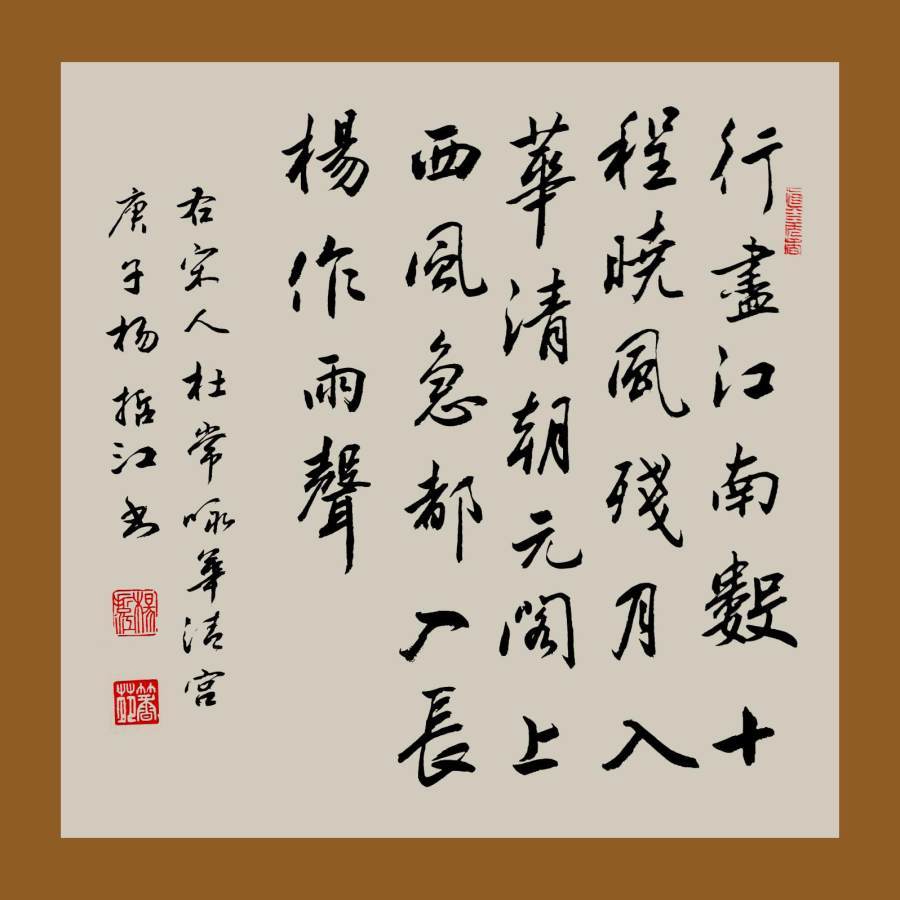 行盡江南數十
程曉風殘月入
華清朝元閣上
西風急都入長
楊作雨聲
右宋人杜常咏華清宫
庚子杨哲江书